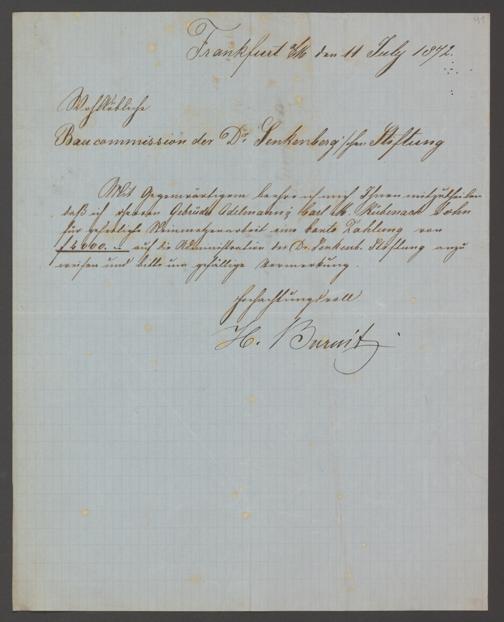 91
Frankfurt a/M den 11 July 1872.
Wohllöbliche
Baucommission der Dr. Senkenberg'schen Stiftung
Mit Gegenwärtigem beehre mich Ihnen mitzutheilen
daß ich Gebrüder Carl M. Sohn
für gelieferte eine Zahlung von
auf die Administration der Dr. Senkenb. Stiftung anzu
weisen und bitte um gefällige Vormerkung.
Hochachtungsvoll
H. Burnitz